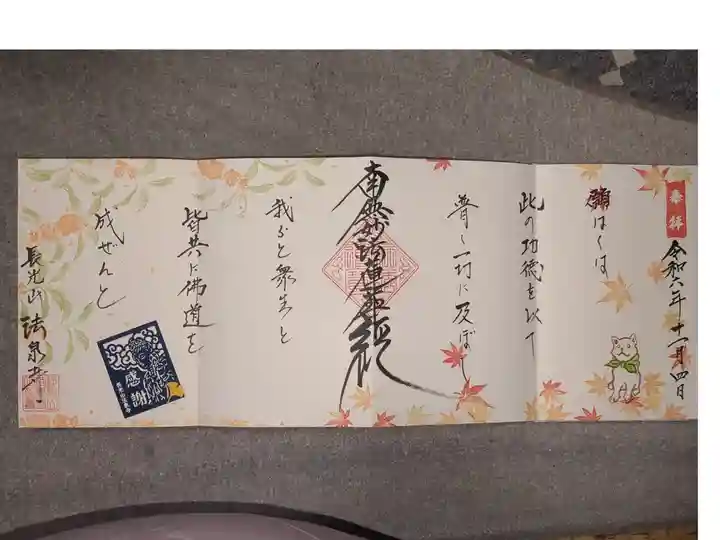 奉拝
令和六年十一月四日
願はくは
此の功徳を以て
普く一切に及ぼし
南無妙法蓮華経
我らと衆生と
皆共に佛道を
成ぜんと
感謝
長光山
法泉寺